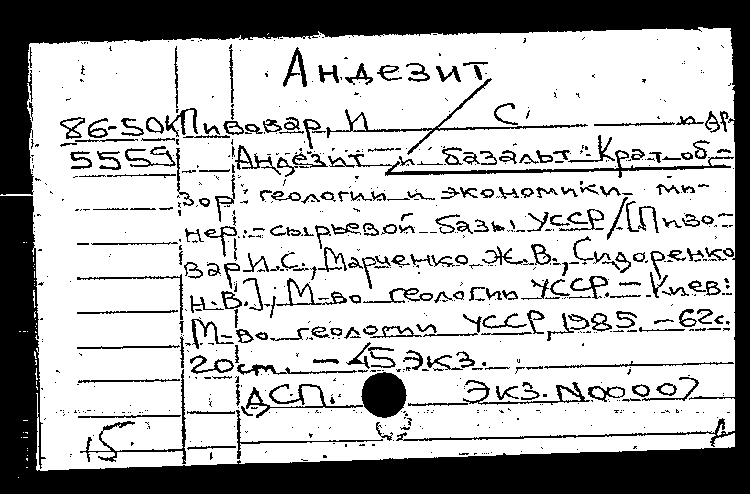 Андезит
86-50К Пивовар, И С и др.
5559 Андезит и базальт: Крат. об-
зор: геологии и экономики ми-
нер.-сырьевой базы УССР/[Пиво-
вар И.С., Марченко Ж.В., Сидоренко
Н.В.]; М-во геологии УССР.-Киев:
М-во геологии УССР, 1985.-62с.
20см. - 45 экз.
ДСП. Экз. N00007
15